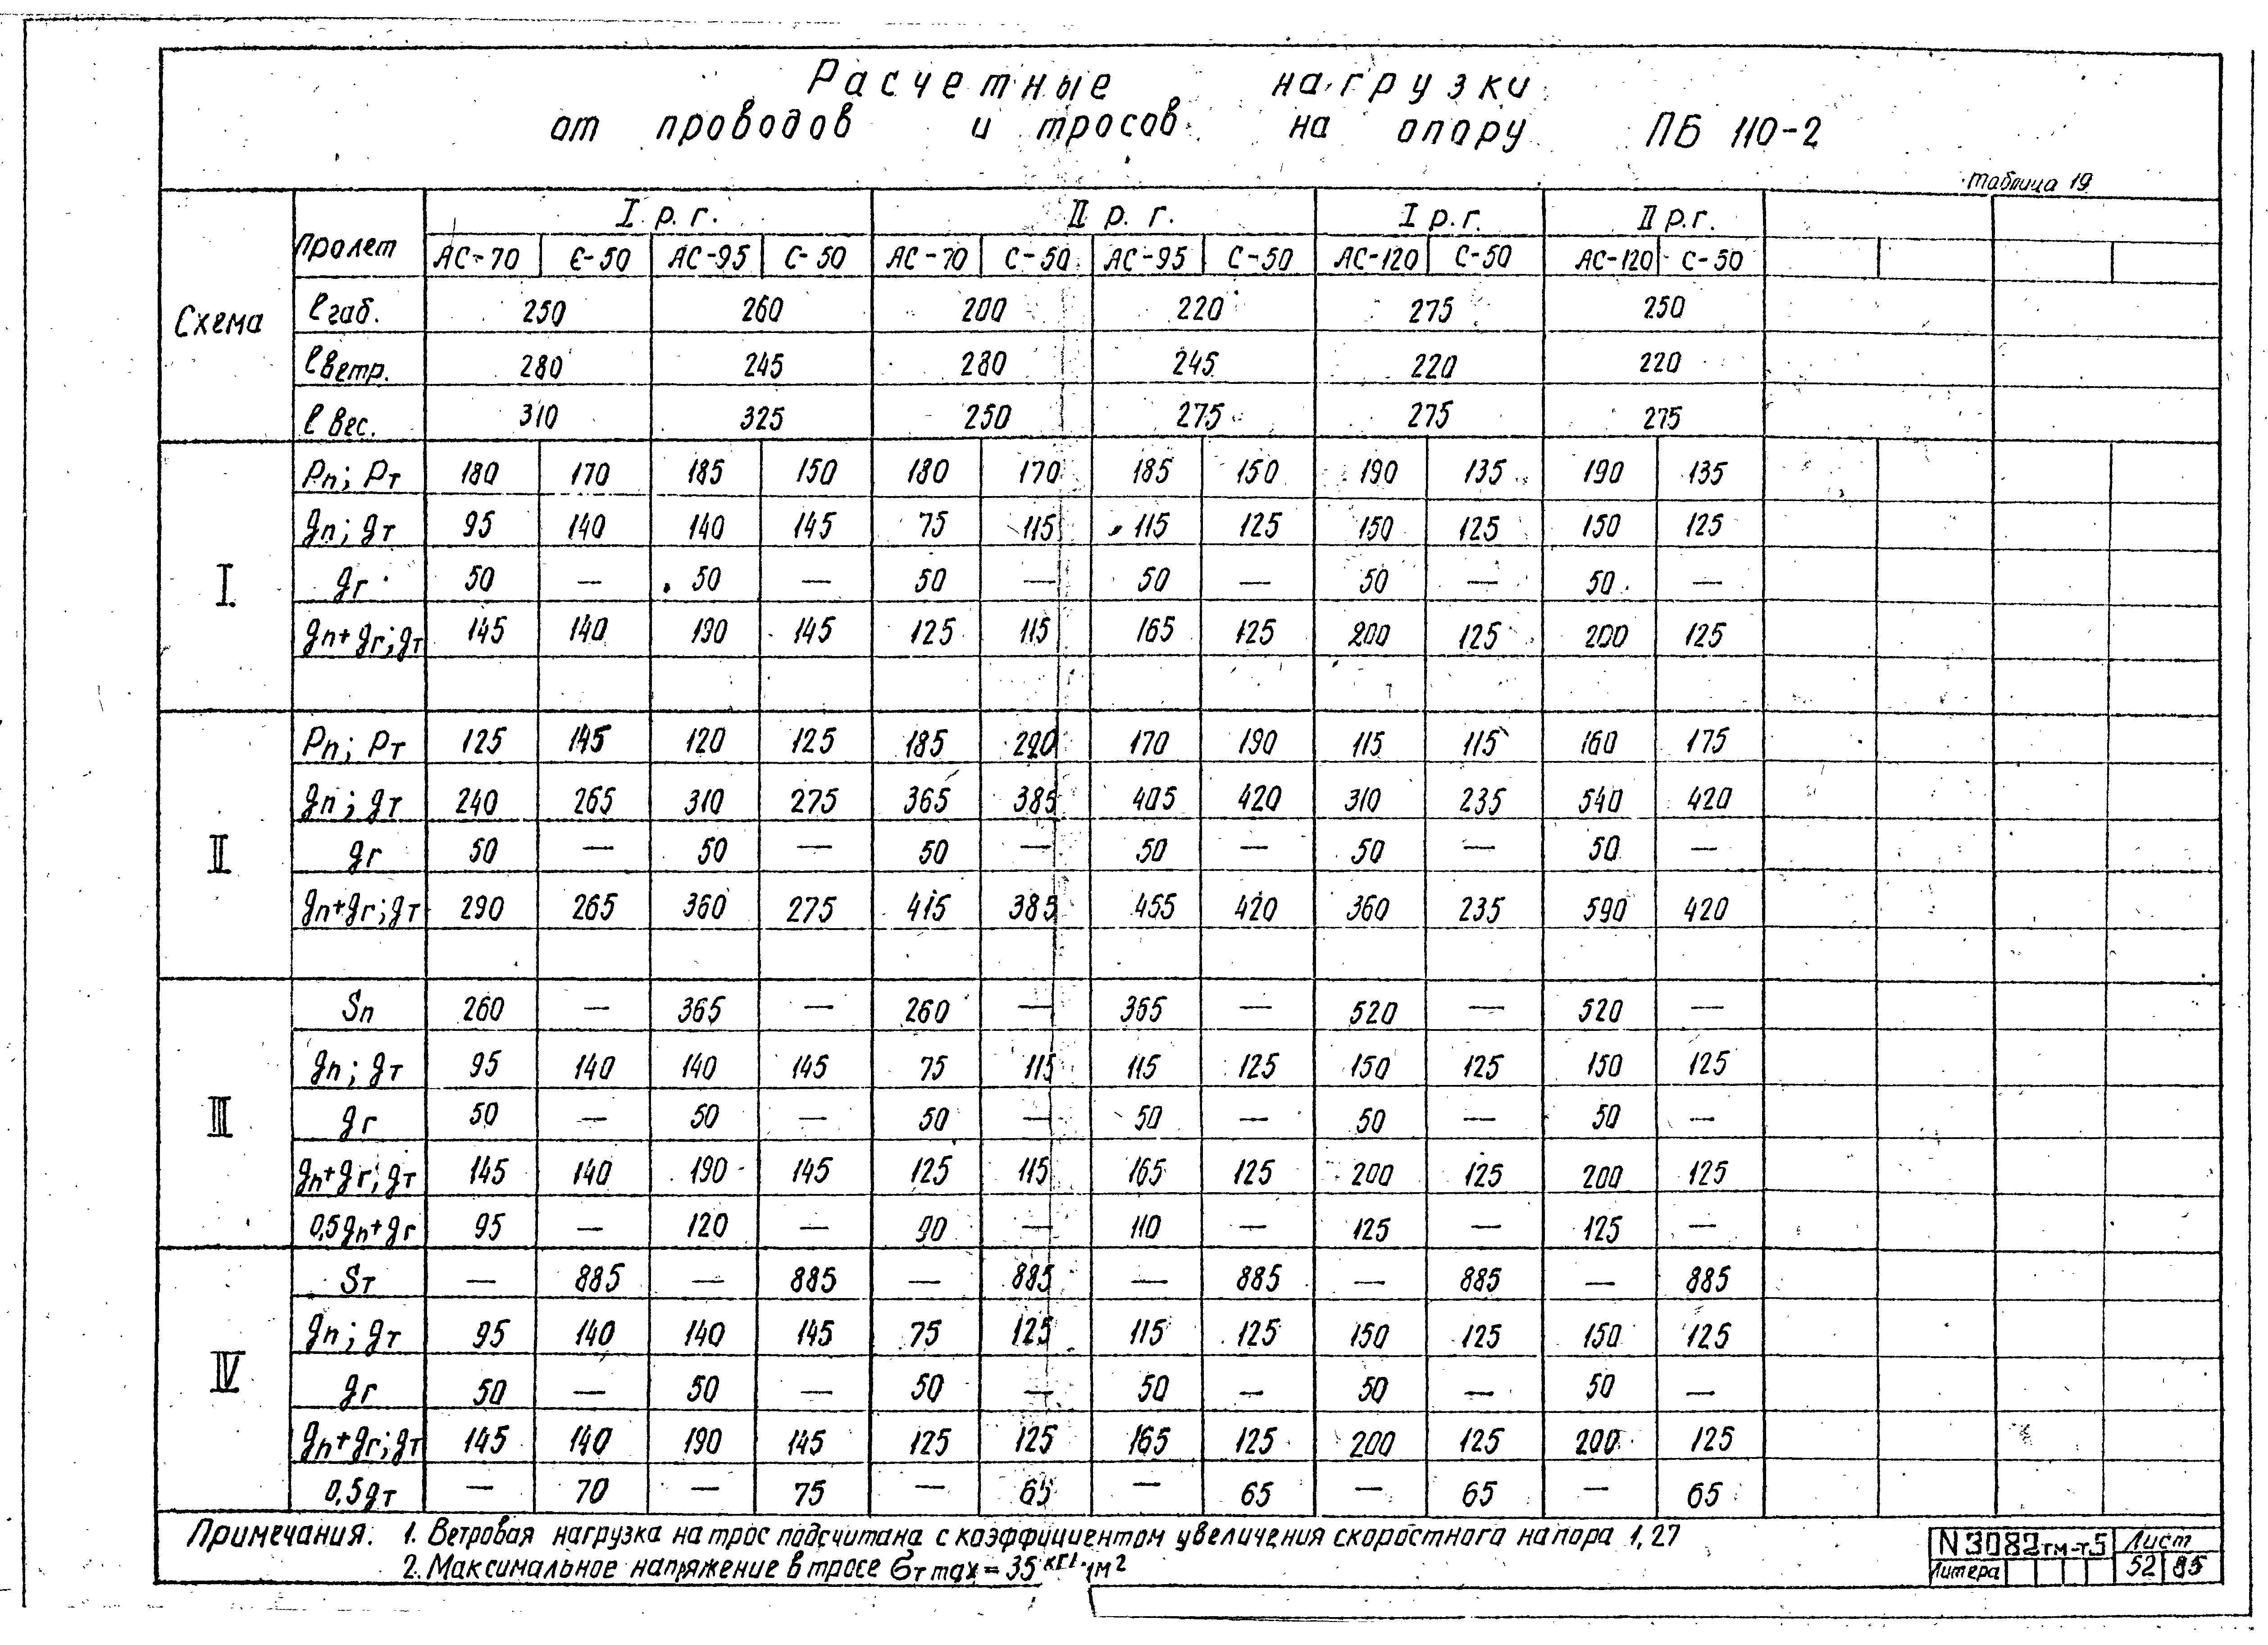 Расчетные нагрузки
от проводов и тросов на опору ПБ 110-2
таблица 19
Схема Пролет I р.г. II р.г. I р.г. II р.г.
АС-70 С-50 АС-95 С-50 АС-70 С-50 АС-95 С-50 АС-120 С-50 АС-120 С-50
lгаб. 250 260 200 220 275 250
lветр. 280 245 280 245 220 220
lвес. 310 325 250 275 275 275
I
Pп; Pт 180 170 185 150 180 170 185 150 190 135 190 135
gп; gт 95 140 140 145 75 115 115 125 150 125 150 125
gг 50 — 50 — 50 — 50 — 50 — 50 —
gп+gг; gт 145 140 190 145 125 115 165 125 200 125 200 125
II
Pп; Pт 125 145 120 125 185 220 170 190 115 115 160 175
gп; gт 240 265 310 275 365 385 405 420 310 235 540 420
gг 50 — 50 — 50 — 50 — 50 — 50 —
gп+gг; gт 290 265 360 275 415 385 455 420 360 235 590 420
III
Sп 260 — 365 — 260 — 365 — 520 — 520 —
gп; gт 95 140 140 145 75 115 115 125 150 125 150 125
gг 50 — 50 — 50 — 50 — 50 — 50 —
gп+gг; gт 145 140 190 145 125 115 165 125 200 125 200 125
0,5gп+gг 95 — 120 — 90 — 110 — 125 — 125 —
IV
Sт — 885 — 885 — 885 — 885 — 885 — 885
gп; gт 95 140 140 145 75 125 115 125 150 125 150 125
gг 50 — 50 — 50 — 50 — 50 — 50 —
gп+gг; gт 145 140 190 145 125 125 165 125 200 125 200 125
0,5gт — 70 — 75 — 65 — 65 — 65 — 65
Примечания: 1. Ветровая нагрузка на трос подсчитана с коэффициентом увеличения скоростного напора 1,27
2. Максимальное напряжение в тросе σт max = 35
N3082тм-т5 Лист
Литера 52 85